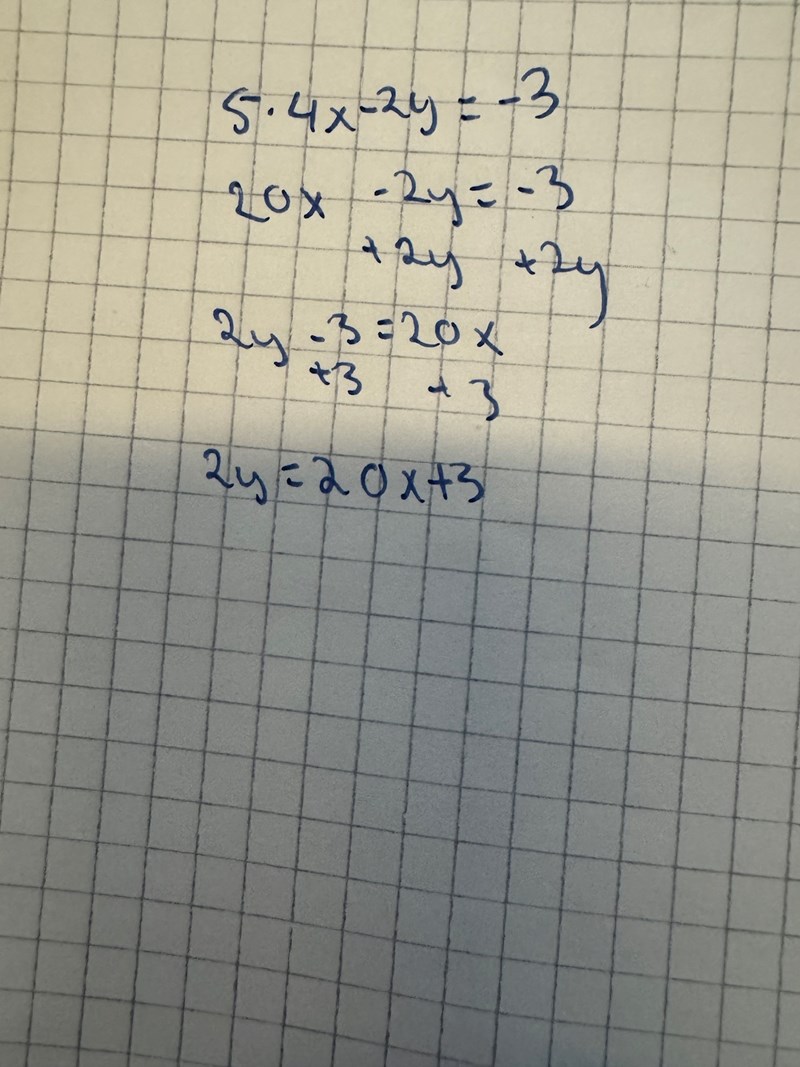 5·4x-2y=-3
20x -2y=-3
+2y +2y
2y-3=20x
+3 +3
2y=20x+3